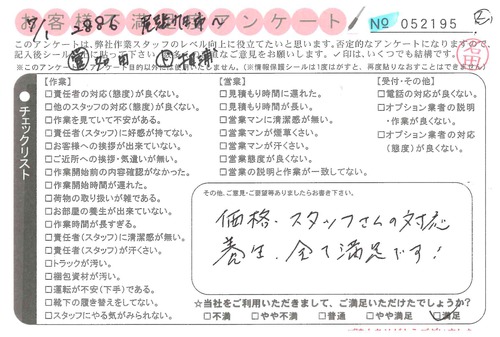 お客様満足度アンケート
7/1 2886
№ 052195
このアンケートは、弊社作業スタッフのレベル向上に役立てたいと思います。否定的なアンケートになりますので、
記入後シールを　　　　　さい。多　　　　　直なご意見をお願いします。印は、いくつでも結構です。
※このアンケート　　　　　目的以外には使いたしません。(※情報保護シールは1度はがすと、再度貼りなおすことはできません)
チェックリスト
【作業】
□責任者の対応(態度)が良くない。
□他のスタッフの対応(態度)が良くない。
□作業を見ていて不安がある。
□責任者(スタッフ)に好感が持てない。
□お客様への挨拶が出来ていない。
□ご近所への挨拶・気遣いが無い。
□作業開始前の内容確認がなかった。
□作業開始時間が遅れた。
□荷物の取り扱いが雑である。
□お部屋の養生が出来ていない。
□作業時間が長すぎる。
□責任者(スタッフ)に清潔感が無い。
□責任者(スタッフ)が汗くさい。
□トラックが汚い。
□梱包資材が汚い。
□運転が不安(下手)である。
□靴下の履き替えをしてない。
□スタッフにやる気がみられない。
【営業】
□見積もり時間に遅れた。
□見積もり時間が長い。
□営業マンに清潔感が無い。
□営業マンが煙草くさい。
□営業マンが汗くさい。
□営業態度が良くない。
□営業の説明と作業が一致してない。
【受付・その他】
□電話の対応が良くない。
□オプション業者の説明
・作業が良くない。
□オプション業者の対応
(態度)が良くない。
その他、ご意見・ご要望等ありましたらお書き下さい。
価格、スタッフさんの対応
養生、全て満足です！
☆当社をご利用いただきまして、ご満足いただけたでしょうか？
□不満 □やや不満 □普通 □やや満足 □満足